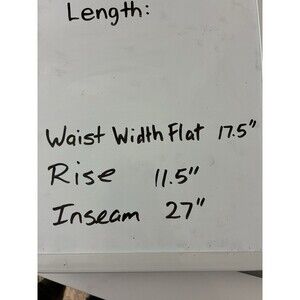 Length:
Waist Width Flat 17.5"
Rise 11.5"
Inseam 27"